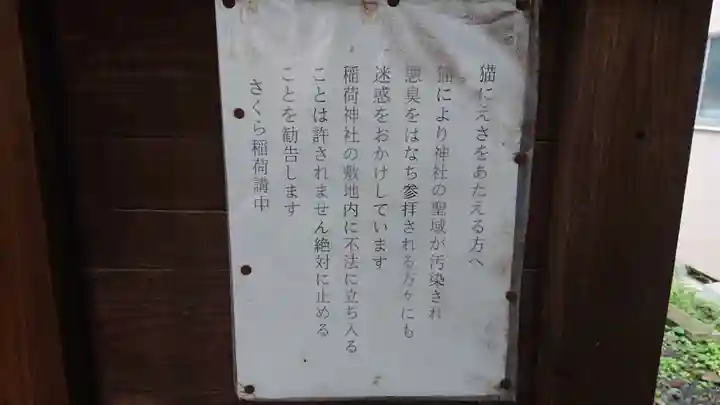 猫にえさをあたえる方へ
猫により神社の聖域が汚染され
悪臭をはなち参拝される方々にも
迷惑をおかけしています
稲荷神社の敷地内に不法に立ち入る
ことは許されません絶対に止める
ことを勧告します
さくら稲荷講中